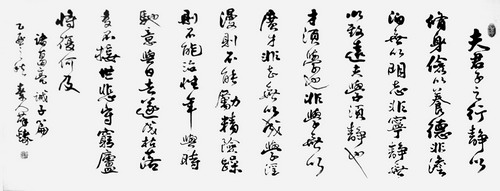 夫君子之行靜以
脩身儉以養德非澹
泊無以明志非寧靜無
以致遠夫學須靜也
才須學也非學無以
廣才非志無以成學淫
漫則不能勵精險躁
則不能治性年與時
馳意與日去遂成枯落
多不接世悲守窮廬
將復何及
諸葛亮誡子篇